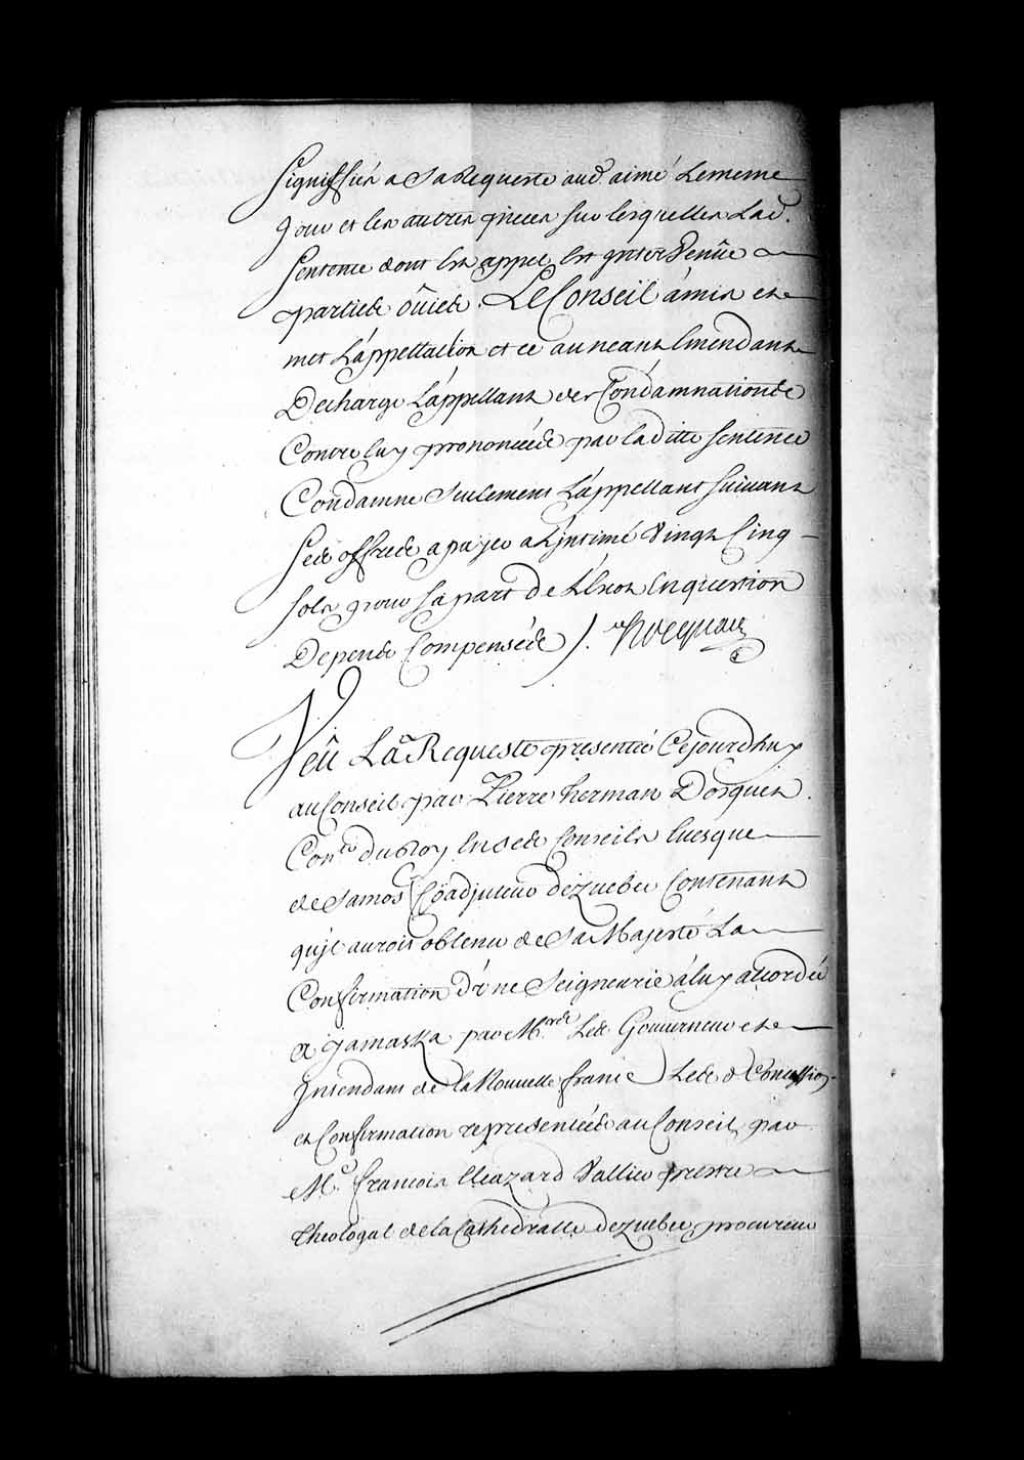 signiffiés a Sa Requeste aud. aimé Le meme
Jour et les autres pieces sur lesquelles Lad.
Sentence dont Est appel Est Intervenüe
partiës oüiës. Le Conseil à mis et
met L'appellation et ce au neant Emendant
Decharge L'appellant des Condamnationës
Contre luy prononcéës par la ditte Sentence
Condamne Seulement L'appellant Suivant
Sës offrës a payer a L'jntimé Vingt Cinq
Sols pour Sa part de L'Exot En question
Dépens Compensés ./. Hocquart
Veû La Requeste presentée Cejourdhuy
au Conseil par Pierre herman Dosquet
Con.er du Roy En Sës Conseils Euesque
de Samos Coadjuteur de Quebec Contenant
qu'jl auroit obtenu de Sa Majesté La
Confirmation D'vne Seigneurie à luy accordée
a yamaska par M. Lës Gouuerneur et
Intendant de la Nouuelle france Lesd. Concession
et Confirmation representéës au Conseil par
M.e francois Eleazard Vallier prestre
theologal de la Cathedralle de Quebec procureur